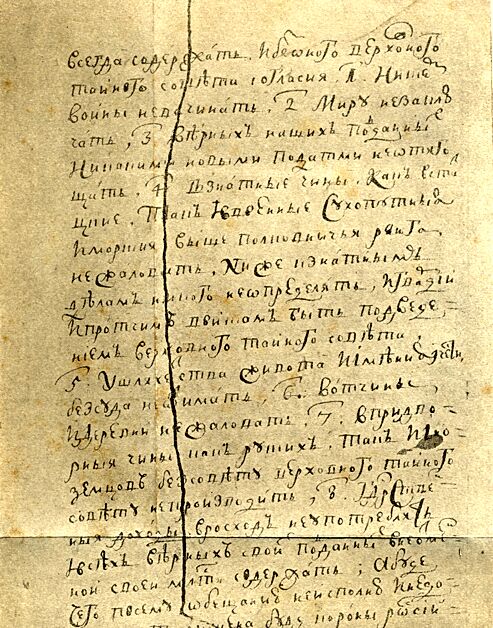 всегда содержать, и без оного верховного
тайного совѣта согласия 1, Ни с кѣм
войны невсчинать, 2 Миру незаклю
чать, 3 вѣрныхъ нашихъ подданныхъ
Никакими новыми податми неотяго
щать, 4, Взнатные чины, какъ вста
цкие, такъ ївоенные Сухопутныя
ИМорския выше полковничья ранга
нежаловать, Ниже кзнатнымъ
дѣламъ никого неопределять, Игвардїи
Ипротчимъ войскамъ быть подведе=
ниемъ верховного тайного совѣта
5. Ушляхетства живота Иимѣния Ичести
безсуда неотимать, 6. вотчины,
Идеревни нежаловать, 7. впридво=
рныя чины какъ рускихъ, такъ Ино=
земцовъ безсовѣту верховного тайного
совѣту непроизводить, 8. Гдрстве=
ныя доходы врасходъ неупотреблять
Ивсѣхъ вѣрныхъ своихъ подданныхъ внеотме=
ной своей млсти содержать; Абуде
чего посему обещанию неисполню Инедо=
буду короны россий=